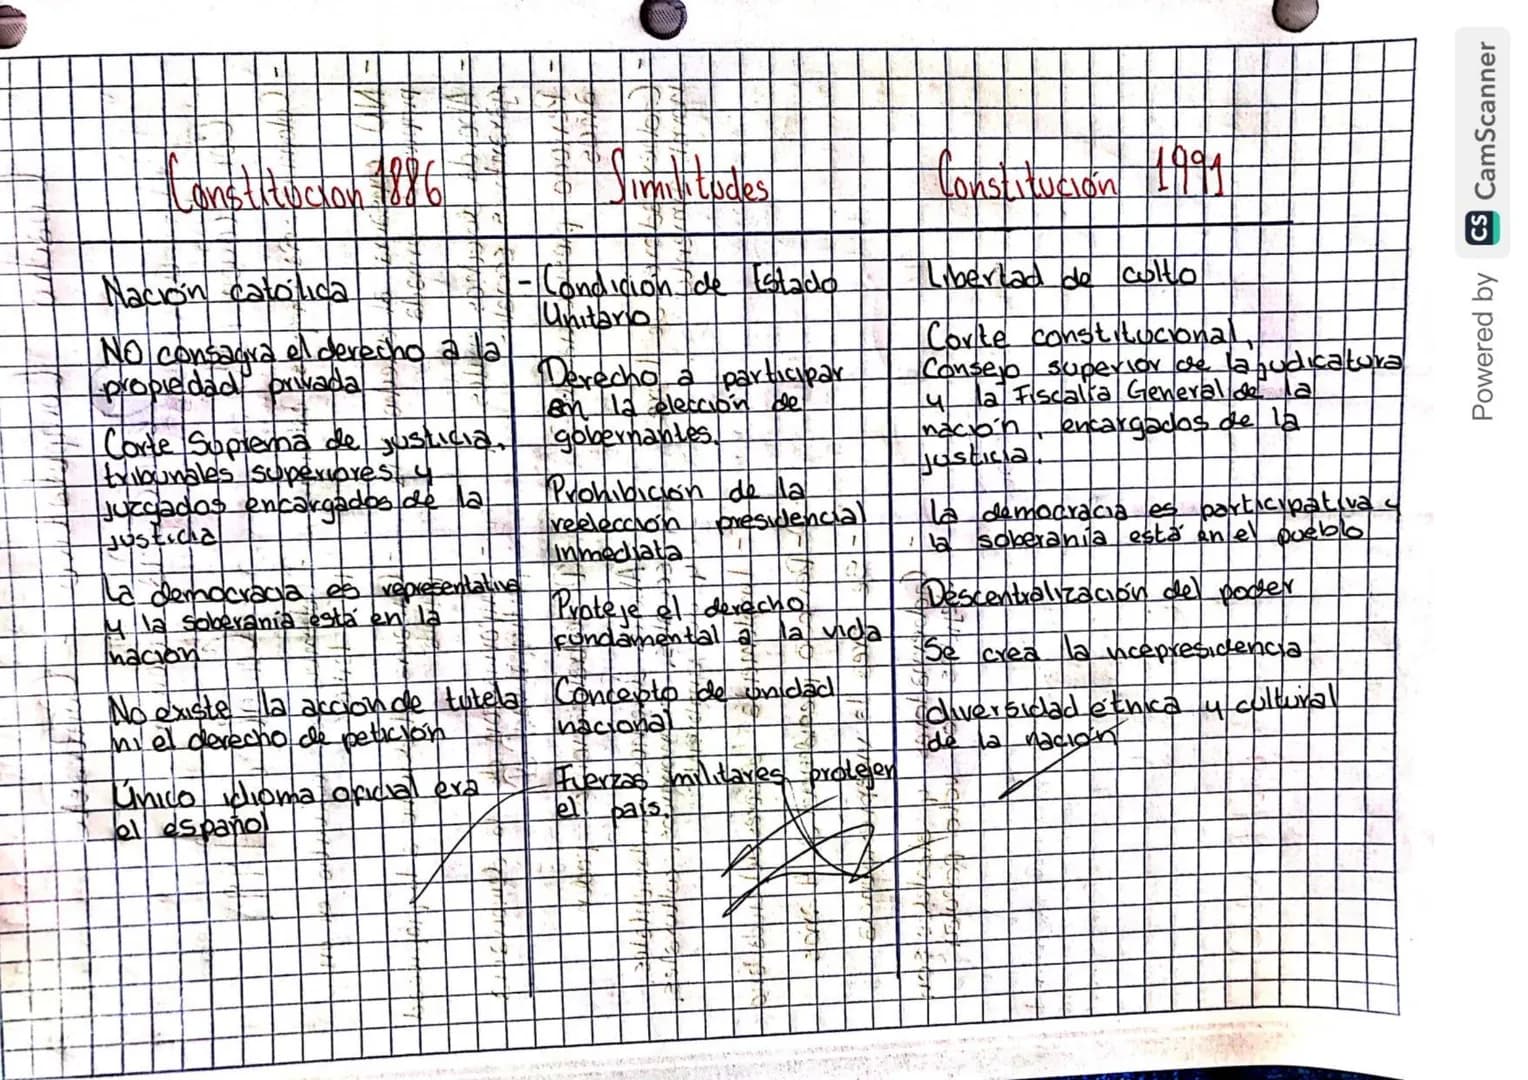 Constitucion 1886
Nación católica
NO consagra el derecho a la
propiedad privada
Corte Suprema de justicia,
tribunales superiores y
juzgados encargados de la
justicia
La democracia es representativa
y la soberanía está en la
nación
No existe la acción de tutela
ni el derecho de petición
Único idioma oficial era
el español
Similitudes
- Condición de Estado
Unitario
Derecho a participar
en la elección de
gobernantes.
Prohibición de la
reelección presidencial
inmediata
Proteje el derecho
fundamental a la vida
Concepto de unidad
nacional
Fuerzas militares protejen
el país.
Constitución 1991
Libertad de culto
Corte constitucional,
Consejo superior de la judicatura
y la Fiscalía General de la
nación, encargados de la
justicia.
La democracia es participativa y
la soberanía está en el pueblo
Descentralización del poder
Se crea la vicepresidencia
diversidad étnica y cultural
de la nación
Powered by CS CamScanner